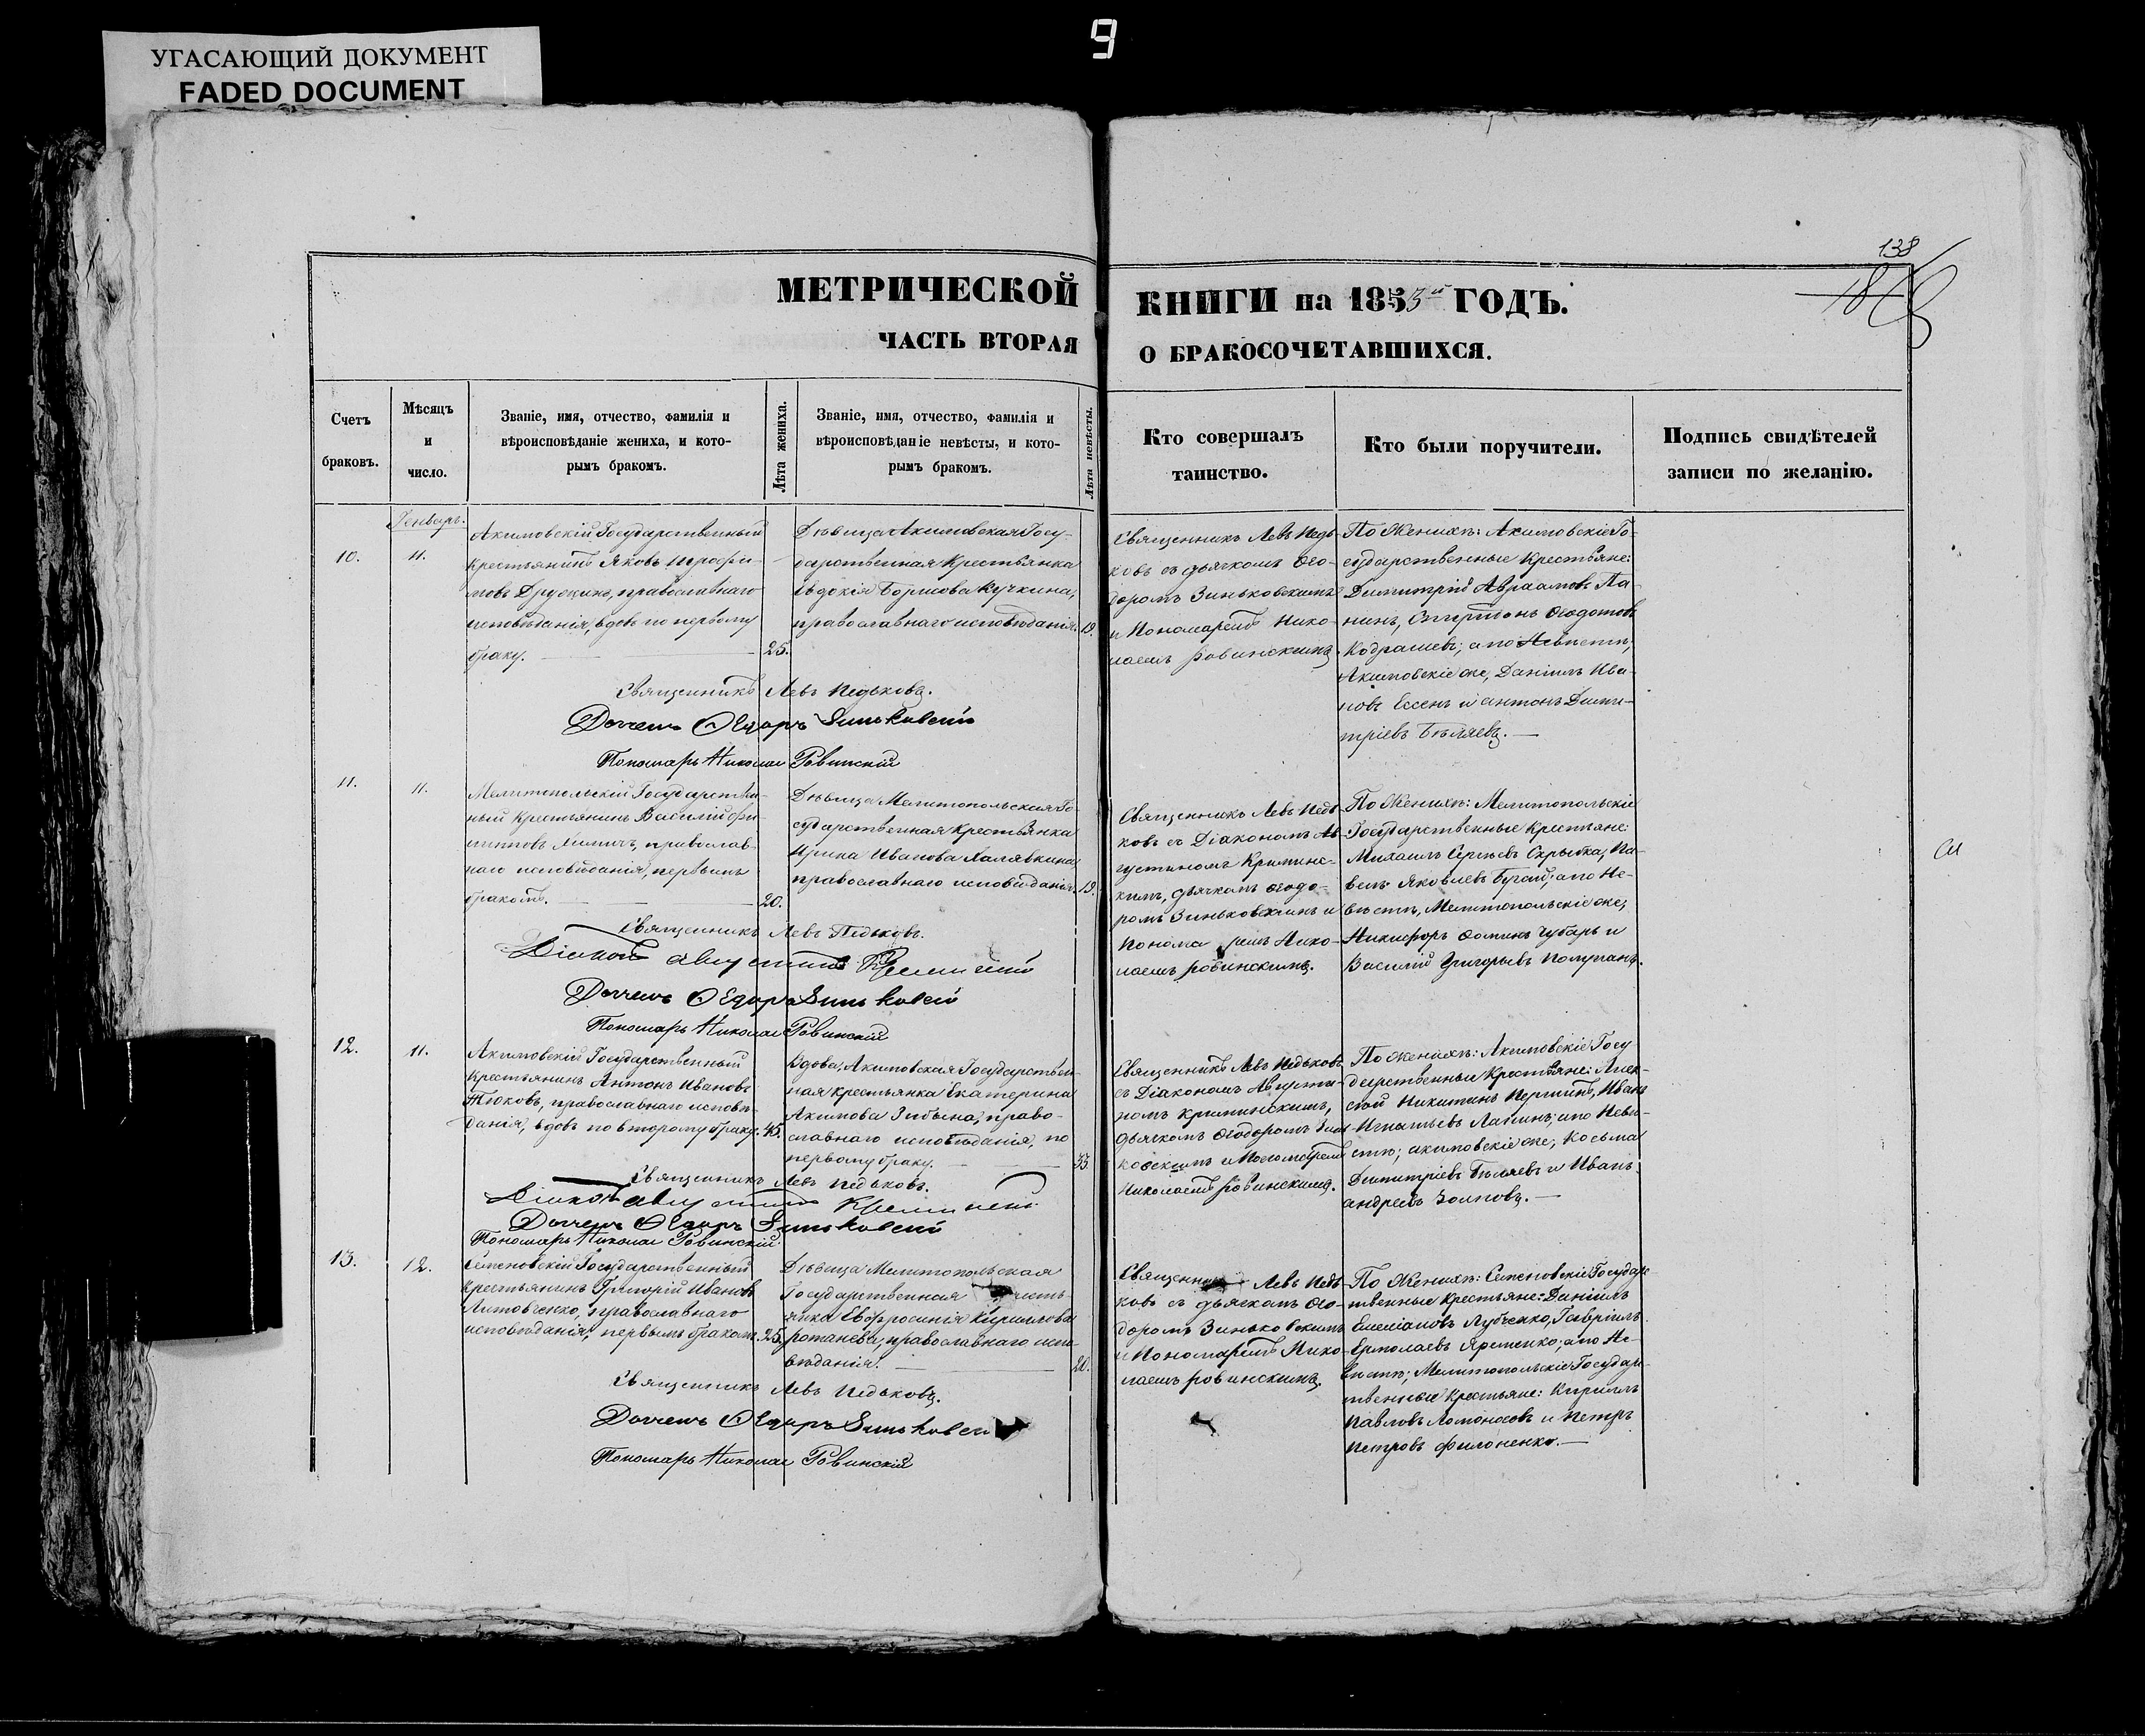 9
УГАСАЮЩИЙ ДОКУМЕНТ
FADED DOCUMENT
138
МЕТРИЧЕСКОЙ
ЧАСТЬ ВТОРАЯ
КНИГИ на 1853й ГОДЪ.
О БРАКОСОЧЕТАВШИХСЯ.
Счетъ
браковъ.
Мѣсяцъ
и
число.
Званіе, имя, отчество, фамилія и
вѣроисповѣданіе жениха, и кото-
рымъ бракомъ.
Лѣта жениха.
Званіе, имя, отчество, фамилія и
вѣроисповѣданіе невѣсты, и кото-
рымъ бракомъ.
Лѣта невѣсты.
Кто совершалъ
таинство.
Кто были поручители.
Подпись свидѣтелей
записи по желанію.
Генварь.
10.
11.
Акимовскій Государственный
Крестьянинъ Яковъ
православнаго
исповѣданія, вдовъ по первому
браку.
25.
Дѣвица Акимовская Госу-
дарственная Крестьянка
Евдокія Борисова Кучкина,
православнаго исповѣданія.
19.
Священникъ Левъ Педь-
ковъ съ дьячкомъ Ѳео-
доромъ Зиньковскимъ
и Пономаремъ Нико-
лаемъ Ровинскимъ.
По Женихѣ: Акимовскіе Го-
сударственные Крестьяне:
Димитрій Авраамовъ Па-
нинъ, Спиридонъ Ѳеодотовъ
а по Невѣстѣ,
Акимовскіе же, Даніилъ Ива-
новъ Есенъ и Антонъ Дими-
тріевъ Бѣляевъ.
Священникъ Левъ Педьковъ.
Дьячекъ Ѳедоръ Зиньковскій
Пономарь Николай Ровинскій
11.
11.
Мелитопольскій Государствен-
ный Крестьянинъ Василій Фи-
липповъ православ-
наго исповѣданія, первымъ
бракомъ.
20.
Дѣвица Мелитопольская Го-
сударственная Крестьянка
Ирина Иванова Халявкина
православнаго исповѣданія.
19.
Священникъ Левъ Педь-
ковъ съ Діакономъ Ав-
густиномъ Кримінс-
кимъ, дьячкомъ Ѳеодо-
ромъ Зиньковскимъ и
Пономаремъ Нико-
лаемъ Ровинскимъ.
По Женихѣ: Мелитопольскіе
Государственные Крестьяне:
Михаилъ Сергѣевъ Скрыбка, Па-
велъ Яковлевъ Бугай; а по Не-
вѣстѣ, Мелитопольскіе же,
Никифоръ Ѳоминъ Чубарь и
Василій Григорьевъ Полупанъ.
Священникъ Левъ Педьковъ.
Діаконъ Августинъ
Дьячекъ Ѳедоръ Зиньковскій
Пономарь Николай Ровинскій
12.
11.
Акимовскій Государственный
Крестьянинъ Антонъ Ивановъ
Тюковъ, православнаго исповѣ-
данія, вдовъ по второму браку.
45.
Вдова, Акимовская Государствен-
ная крестьянка Екатерина
Акимова Зибина, право-
славнаго исповѣданія, по
первому браку.
33.
Священникъ Левъ Педьковъ
съ Діакономъ Августи-
номъ Криминскимъ,
дьячкомъ Ѳеодоромъ Зинь-
ковскимъ и Пономаремъ
Николаемъ Ровинскимъ.
По Женихѣ: Акимовскіе Госу-
дарственные Крестьяне: Алек-
сѣй Никитинъ Першинъ, Иванъ
Игнатьевъ Лапинъ; а по Невѣ-
стѣ; акимовскіе же, Косьма
Димитріевъ Бѣляевъ и Иванъ
Андреевъ Зоиповъ.
Священникъ Левъ Педьковъ.
Діаконъ Августинъ
Дьячекъ Ѳедоръ Зиньковскій
Пономарь Николай Ровинскій.
13.
12.
Семеновскій Государственный
Крестьянинъ Григорій Ивановъ
Литовченко, православнаго
исповѣданія, первымъ бракомъ.
25.
Дѣвица Мелитопольская
Государственная
янка Евфросинія Кириллова
православнаго испо-
вѣданія.
20.
Священникъ Левъ Педь-
ковъ съ дьячкомъ Ѳео-
доромъ Зиньковскимъ
и Пономаремъ Нико-
лаемъ Ровинскимъ.
По Женихѣ: Семеновскіе Государс-
твенные Крестьяне: Даніилъ
Емеліановъ Лубченко, Гавріилъ
Ермолаевъ Яременко; а по Не-
вѣстѣ; Мелитопольскіе Государс-
твенные Крестьяне: Кириллъ
Павловъ Ломоносовъ и Петръ
Петровъ Филоненко.
Священникъ Левъ Педьковъ.
Дьячекъ Ѳедоръ Зиньковскій
Пономарь Николай Ровинскій